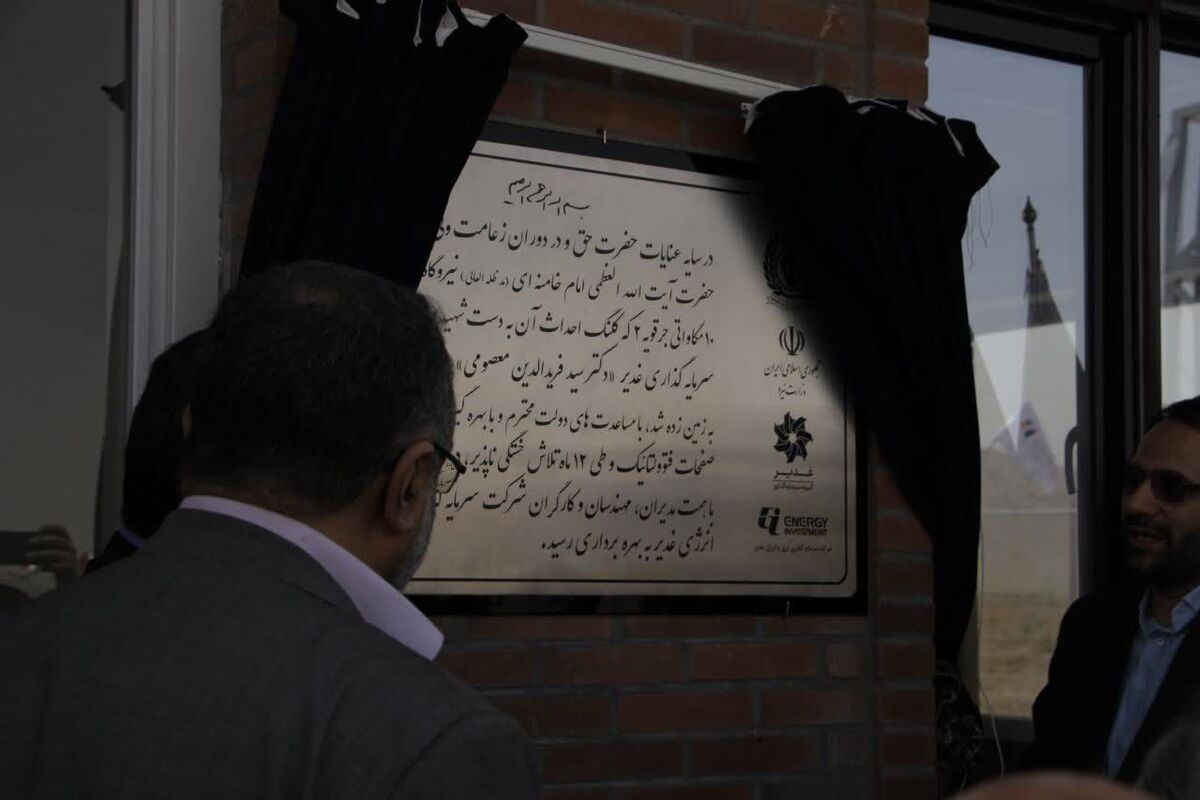 بسم الله الرحمن الرحیم
در سایه عنایات حضرت حق و در دوران زعامت
حضرت آیت الله العظمی امام خامنه ای (مد ظله العالی)
۱۰ مگاواتی جرقویه ۲ که کلنگ احداث آن به دست شهید
سرمایه گذاری غدیر «دکتر سید فریدالدین معصومی»
به زمین زده شد، با مساعدت های دولت محترم و با بهره
صفحات فتوولتائیک و طی ۱۲ ماه تلاش خستگی ناپذیر،
با همت مدیران، مهندسان و کارگران شرکت سرمایه
انرژی غدیر به بهره برداری رسید.
جمهوری اسلامی ایران
وزارت نیرو
غدیر
ENERGY
INVESTMENT
شرکت سرمایه گذاری برق و انرژی غدیر